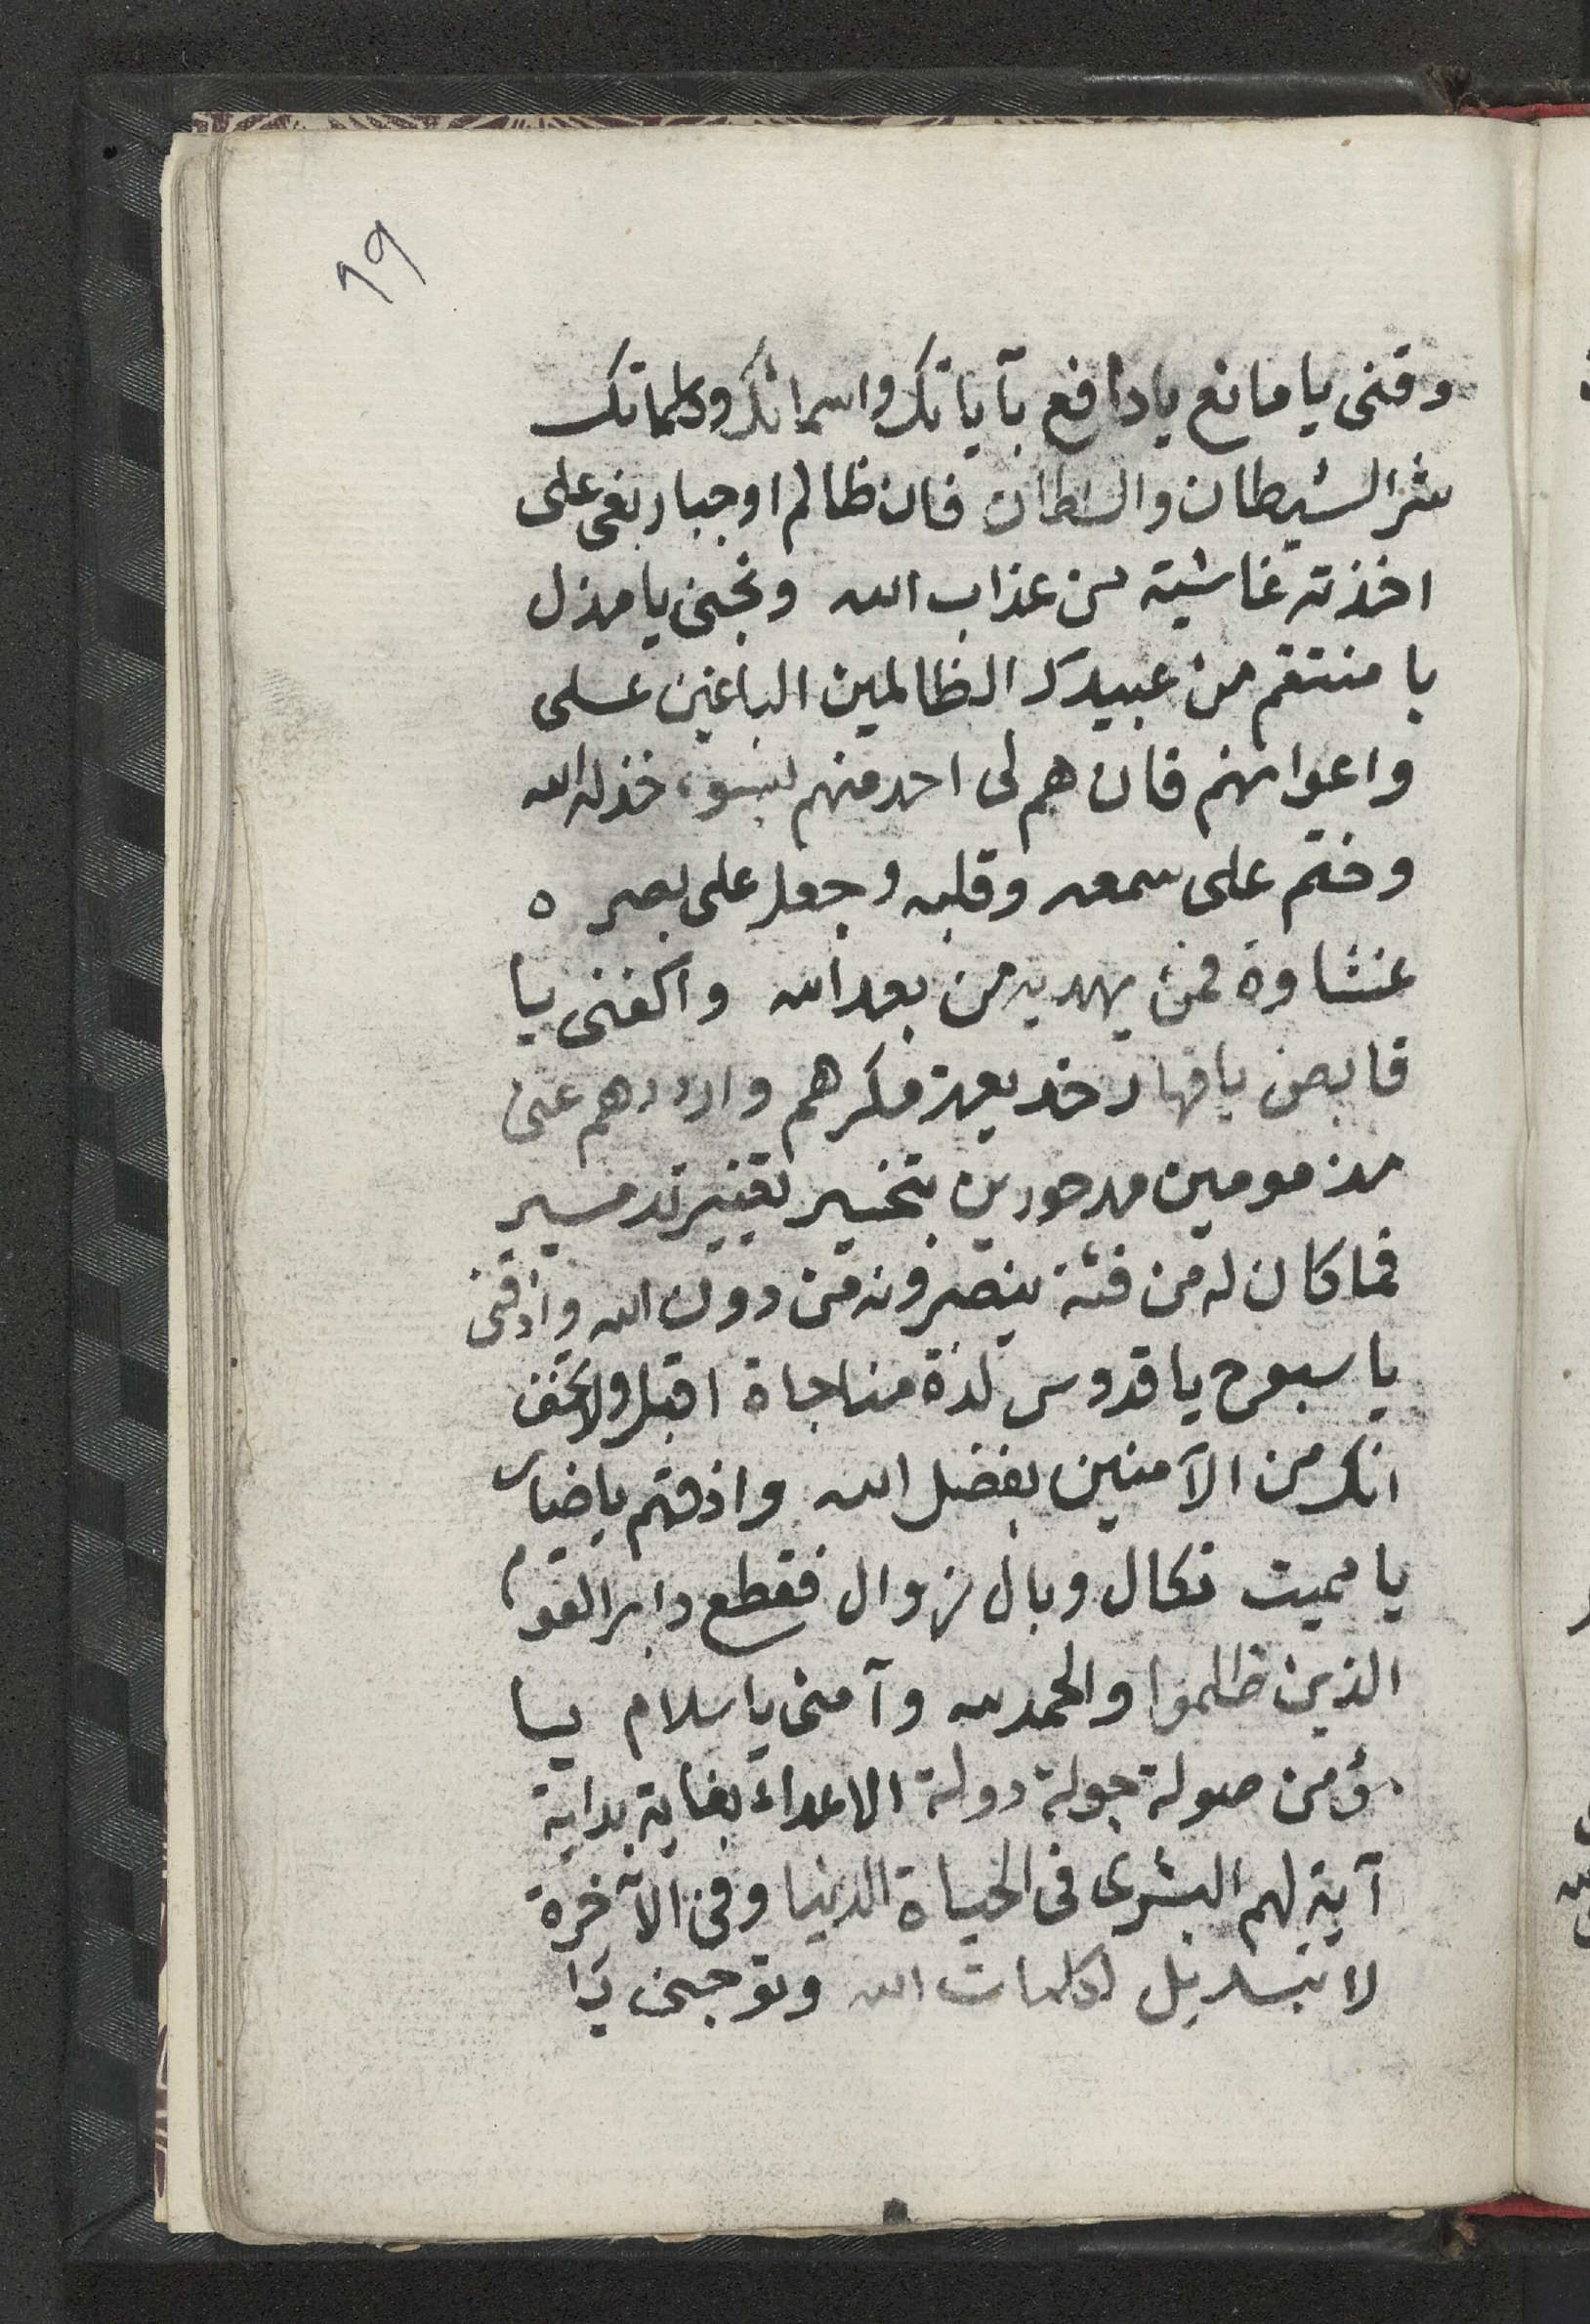 19
وقنى يا مانع يا دافع بآياتك واسمائك وكلماتك
شر الشيطان والسلطان فان ظالم اوجبار بغى على
اخذته غاشية من عذاب الله ونجنى يا مذل
يا منتقم من عبيدك الظالمين الباغين على
واعوانهم فان هم لى احد منهم بسوء خذله الله
وختم على سمعه وقلبه وجعل على بصره
غشاوة فمن يهديه من بعد الله واكفنى يا
قابض يا قهار خديعة مكرهم وارددهم عنى
مذمومين مدحورين بتخسير تغيير تدمير
فما كان له من فئة ينصرونه من دون الله واذقنى
يا سبوح يا قدوس لذة مناجاة اقبل ولاتخف
انك من الآمنين بفضل الله واذقهم ياضار
يا مميت نكال وبال زوال فقطع دابر القوم
الذين ظلموا والحمد لله وآمنى يا سلام يا
مؤمن صولة جولة دولة الاعداء بغاية بداية
آية لهم البشرى فى الحياة الدنيا وفى الآخرة
لا تبديل لكلمات الله وتوجنى يا